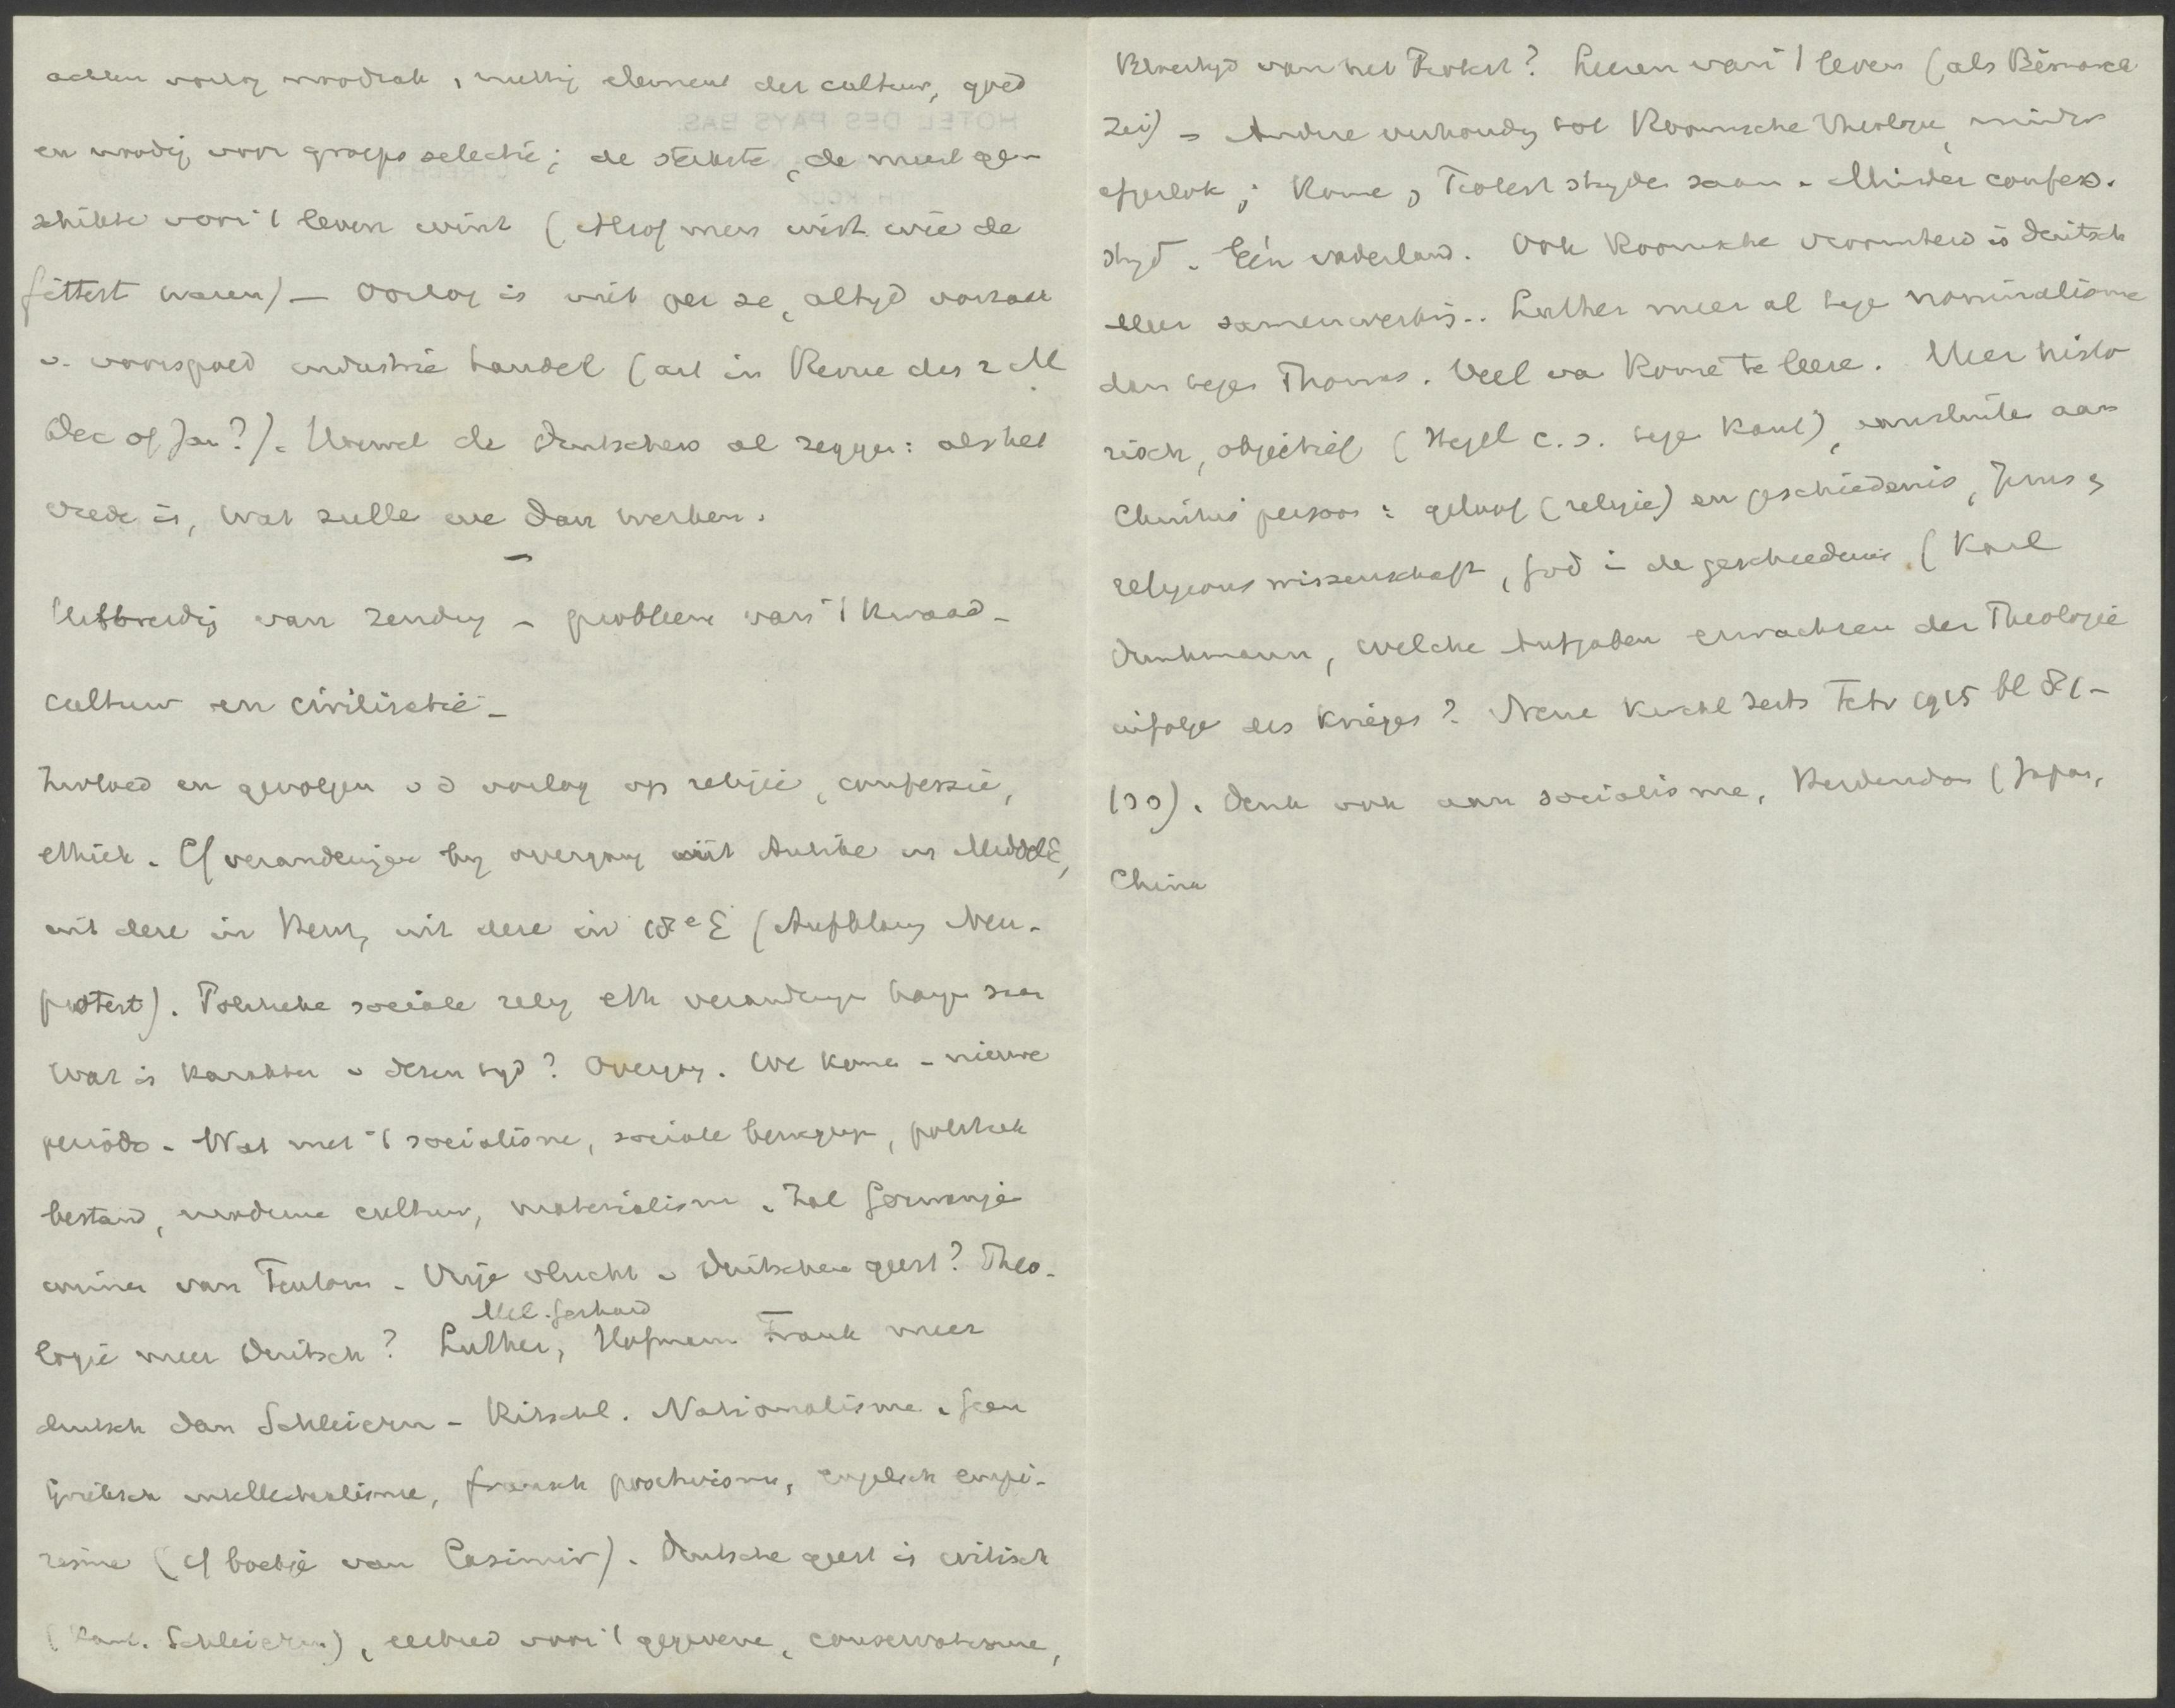 achten oorlog noodzak, nuttig element der cultuur, goed
en noodig voor groepsselectie; de sterkste, de meest ge-
schikte voor 't leven wint (Alsof men wist wie de
fittest waren) — Oorlog is niet per se, altyd oorzaak
v. voorspoed industrie handel (art in Revue des 2 M
Dec of Jan?). Hoewel de Duitschers al zeggen: als het
vrede is, wat zulle we dan werken.
—
Uitbreidg van zendng – probleem van 't kwaad –
cultuur en civilisatie –
Invloed en gevolgen v d oorlog op religie, confessie,
ethiek. Cf veranderingen by overgang uit Antike in MiddelE,
uit deze in Ref, uit deze in 18e E (Aufklärung Neu-
protest). Politieke sociale relig eth verandering hange saam
Wat is karakter v dezen tyd? Overgang. We kome – nieuwe
periode – Wat met 't socialisme, sociale beweging, politiek
bestand, moderne cultuur, materialisme. Zal Germanje
winnen van Teutonen – Vrije vlucht v Duitschen geest? Theo-
Mel. Gerhard
logie meer Duitsch? Luther, Hofmann Frank meer
duitsch dan Schleierm – Ritschl. Nationalisme. Geen
Grieksch intellectualisme, fransch positivisme, engelsch empi-
risme (cf boekje van Casimir). Duitsche geest is critisch
(Kant. Schleierm.), eerbied voor 't gegevene, conservatisme,
van het Protest? Leeren van 't leven (als Bismarck
zei) – Andere verhoudg tot Roomsche Theologie, minder
afgesloten; Rome, Protest stryden saam. Minder confess.
stryd. Eén vaderland. Ook Roomsche vroomheid is duitsch
Meer samenwerking.. Luther meer al tege nominalisme
dan tegen Thomas. Veel va Rome te leere. Meer histo
risch, objectief (Hegel c.s. tege Kant), aansluite aan
Christus persoon: geloof (religie) en geschiedenis, Jezus &
religionswissenschaft, God in de geschiedenis. (Karl
Dunkmann, welche Aufgaben erwachsen der Theologie
infolge des Krieges? Neue Kirchl Zeits Febr 1915 bl 81–
100). Denk ook aan socialisme, Heidendom (Japan,
China